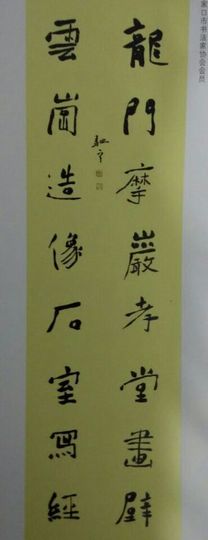 家口市书法家协会会员
龍門摩巖孝堂畫壁
雲崗造像石室寫經